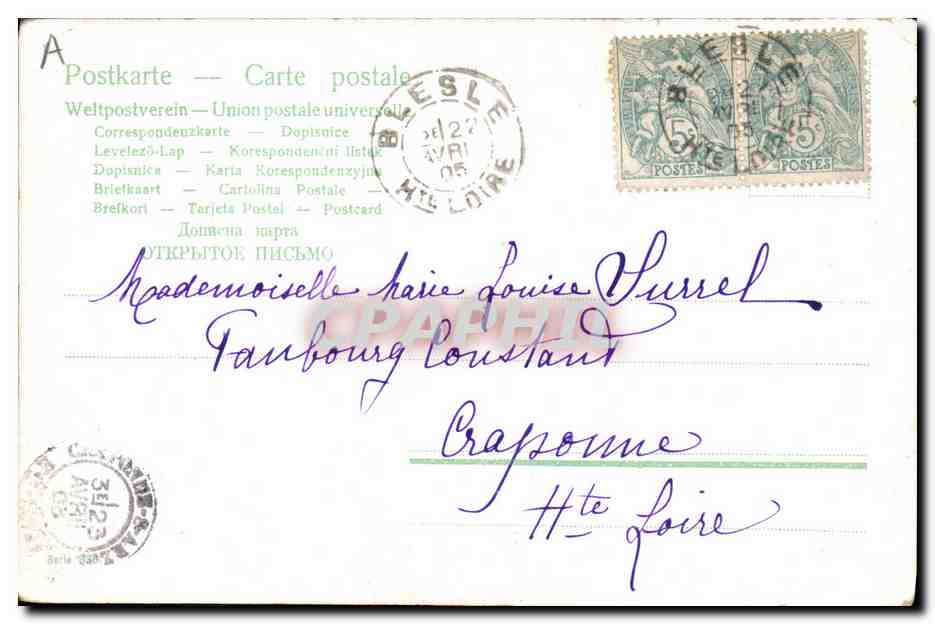 A
Postkarte — Carte postale
Weltpostverein — Union postale universelle
Correspondenzkarte — Dopisnice
Levelező-Lap — Korespondenční lístek
Dopisnica — Karta Korespondencyjna
Briefkaart — Cartolina Postale —
Brefkort — Tarjeta Postal — Postcard
Дописна карта
ОТКРЫТОЕ ПИСЬМО
BLESLE
22
AVRIL
05
HTE LOIRE
BLESLE
22
05
HTE LOIRE
5c
POSTES
5c
POSTES
Mademoiselle Marie Louise Surrel
Faubourg Constant
CPAPHIL
Craponne
Hte Loire
3E 23
AVRIL
05
Serie